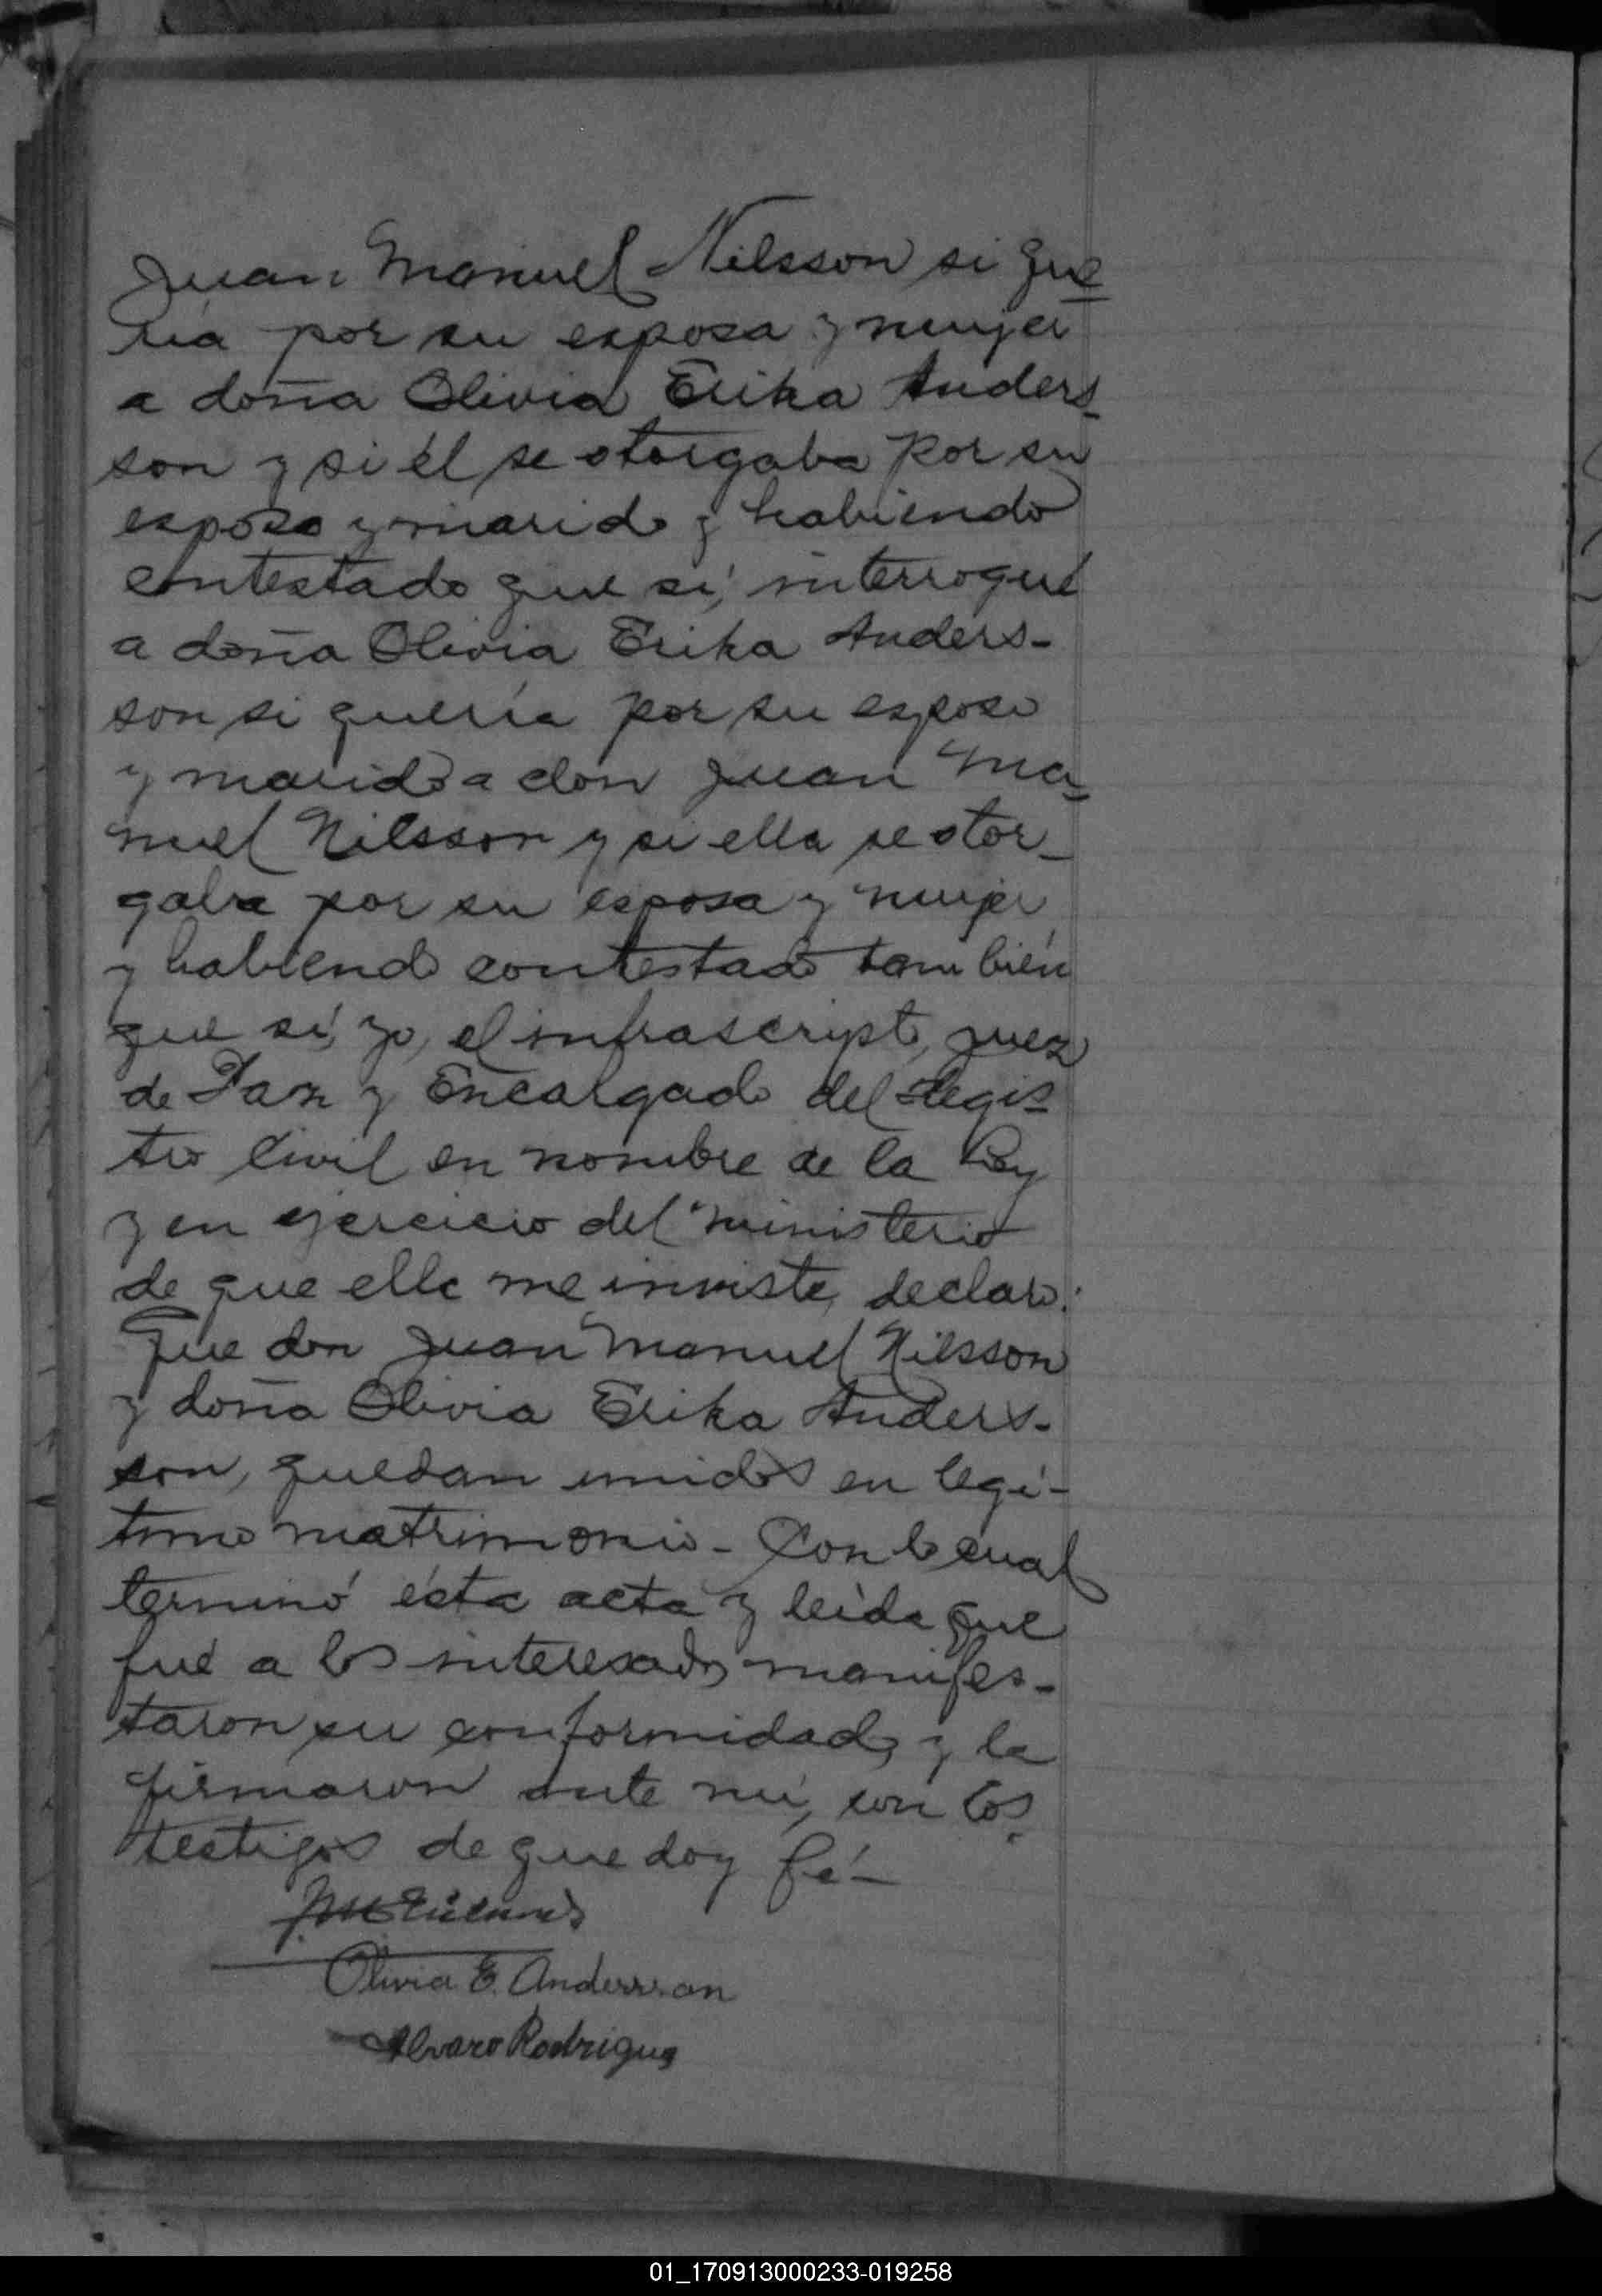 Juan Manuel Nilsson si que
ría por su esposa y mujer
a doña Olivia Erika Anders-
son y si él se otorgaba por su
esposo y marido y habiendo
contestado que sí, interrogué
a doña Olivia Erika Anders-
son si quería por su esposo
y marido a don Juan Ma-
nuel Nilsson y si ella se otor-
gaba por su esposa y mujer
y habiendo contestado también
que sí, yo, el infrascripto, Juez
de Paz y Encargado del Regis-
tro Civil en nombre de la Ley
y en ejercicio del ministerio
de que ella me inviste, declaro:
Que don Juan Manuel Nilsson
y doña Olivia Erika Anders-
son, quedan unidos en legí-
timo matrimonio - Con lo cual
terminó ésta acta y leída que
fué a los interesados manifes-
taron su conformidad, y la
firmaron ante mí, con los
testigos de que doy fé-
Olivia E. Andersson
Alvaro Rodrigues
01_170913000233-019258